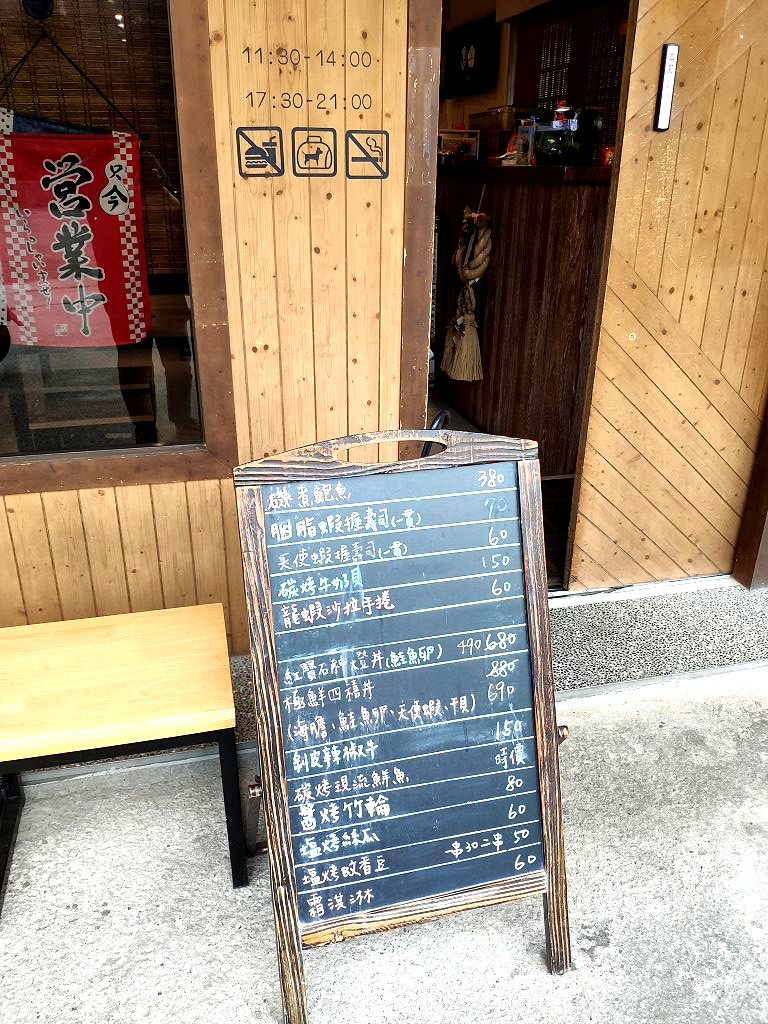 11:30-14:00
17:30-21:00
只今
営業中
いらっしゃいませ!
磯煮鮑魚 380
胭脂蝦握壽司(一貫) 70
天使蝦握壽司(一貫) 60
碳烤牛奶貝 150
龍蝦沙拉手捲 60
紅寶石神燈丼(鮭魚卵) 490 680
極鮮四禧丼 880
690
(海膽、鮭魚卵、天使蝦、干貝)
剝皮辣椒牛 150
碳烤現流鮮魚 時價
醬烤竹輪 80
塩烤絲瓜 60
塩烤敏豆 一串30二串50
霜淇淋 60